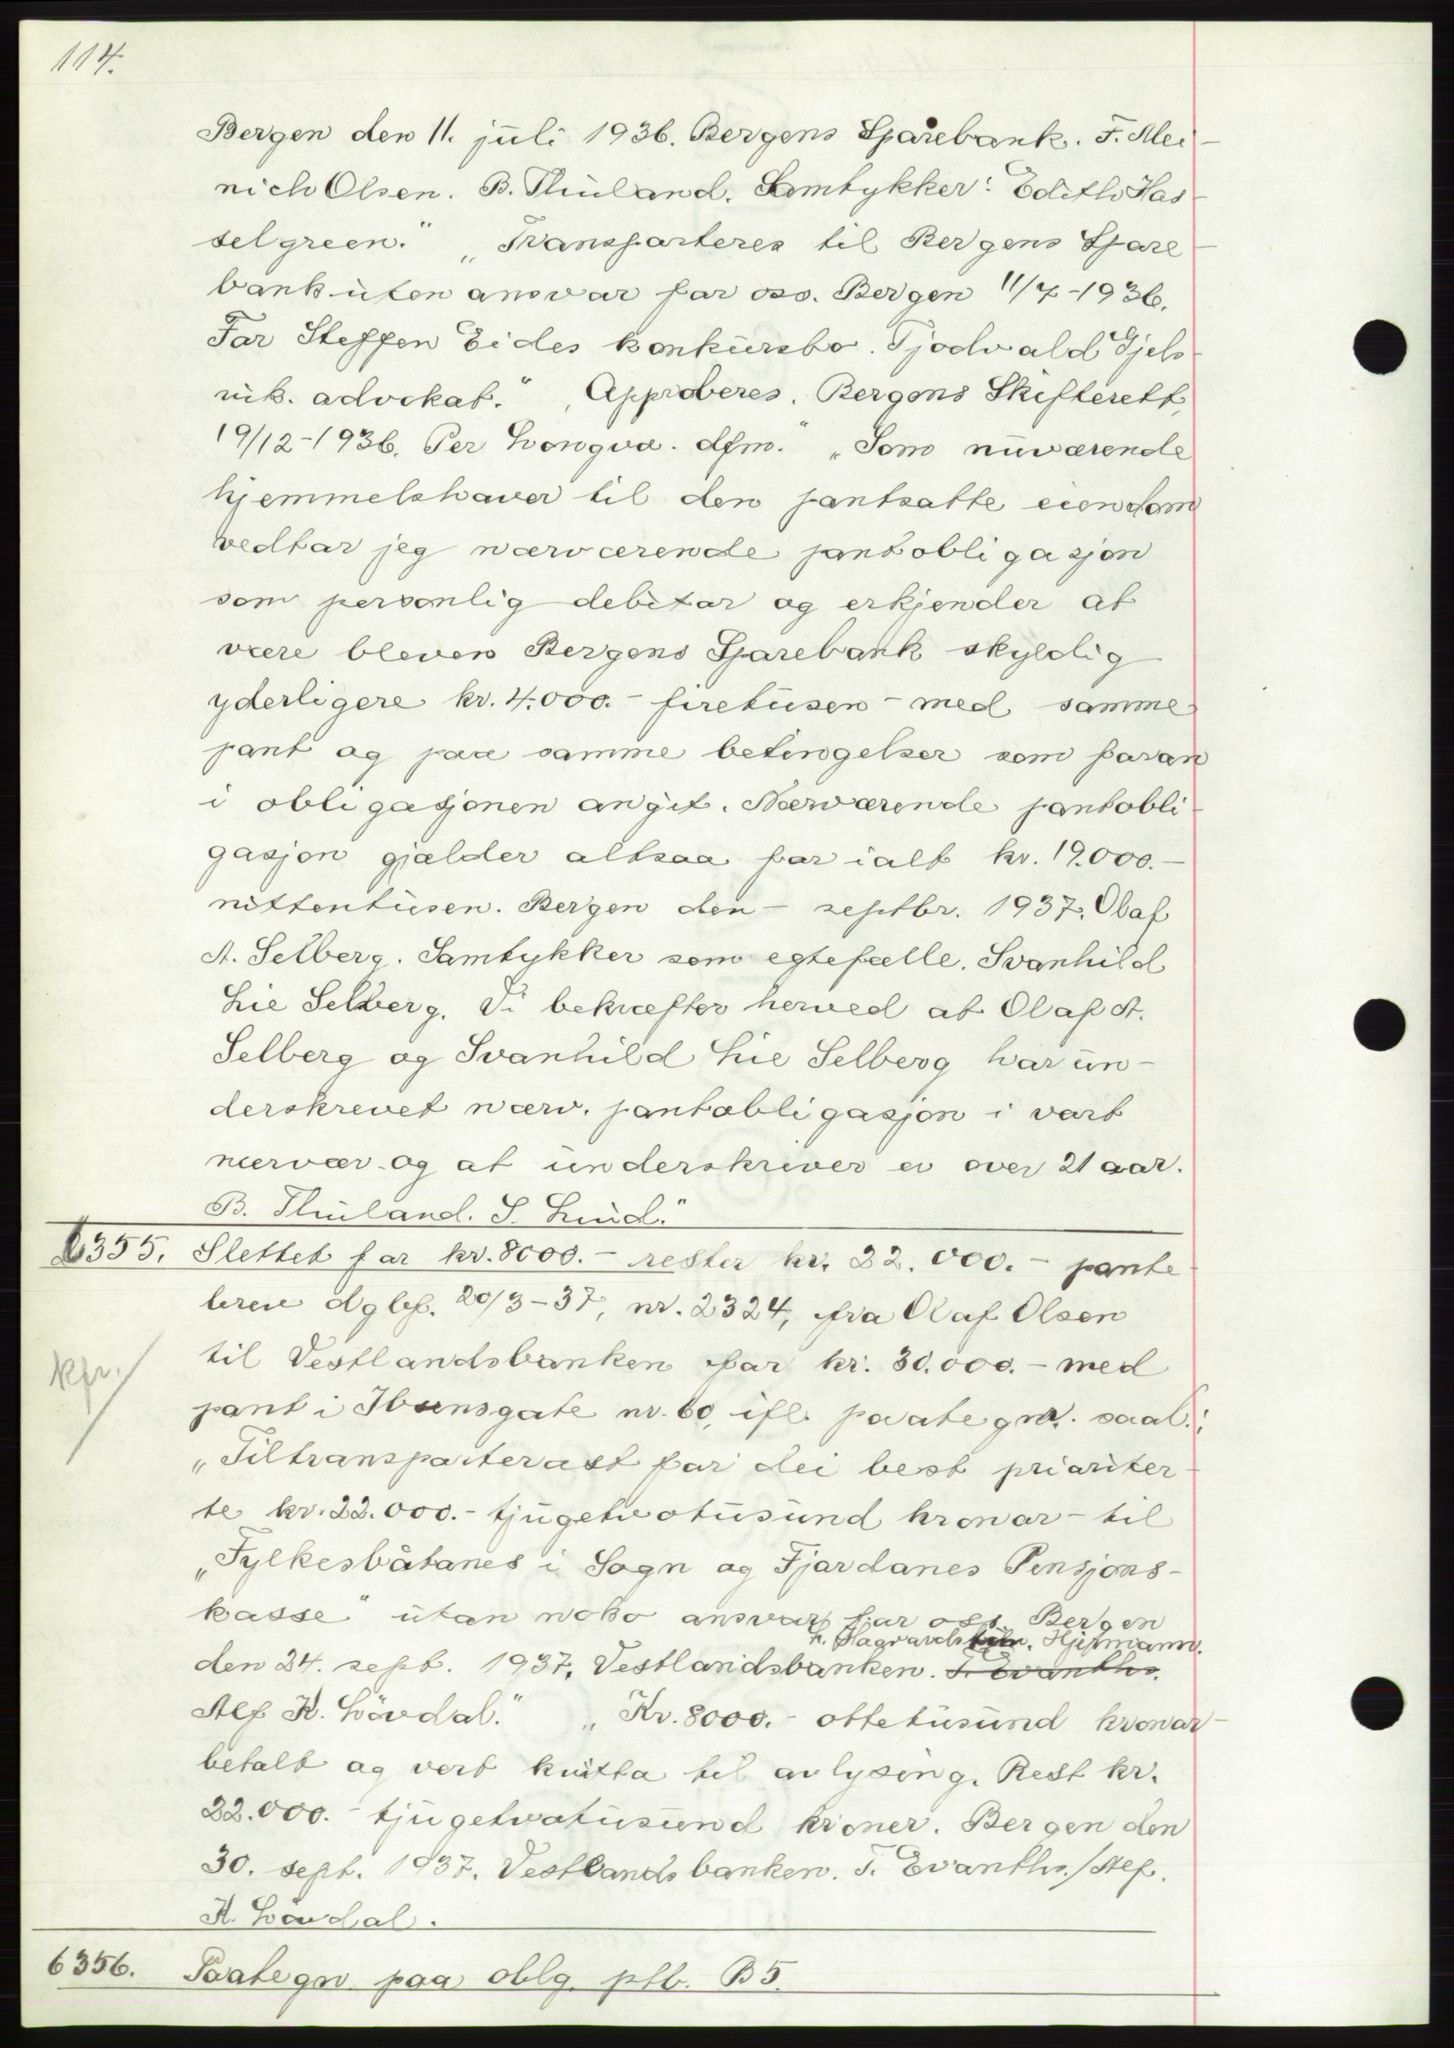 114.
Bergen den 11. juli 1936. Bergens Sparebank. F. Mei-
nich Olsen. B. Thuland. Samtykker: Edith Has-
selgreen." „Transporteres til Bergens Spare-
bank uten ansvar for oss. Bergen 11/7-1936.
For Steffen Eides konkursbo. Tjodvald Gjels-
vik. advokat." „Approberes. Bergens Skifterett,
19/12-1936. Per Longva. dfm." „Som nuværende
hjemmelshaver til den pantsatte eiendom
vedtar jeg nærværende pantobligasjon
som personlig debitor og erkjender at
være bleven Bergens Sparebank skyldig
yderligere kr. 4.000.- firetusen - med samme
pant og paa samme betingelser som foran
i obligasjonen angit. Nærværende pantobli-
gasjon gjælder altsaa for ialt kr. 19.000.-
nittentusen. Bergen den - septbr. 1937. Olaf
A. Selberg. Samtykker som egtefælle. Svanhild
Lie Selberg. Vi bekræfter herved at Olaf A.
Selberg og Svanhild Lie Selberg har un-
derskrevet nærv. pantobligasjon i vort
nærvær og at underskriver er over 21 aar.
B. Thuland. S. Lund."
6355. Slettet for kr. 8000.- rester kr. 22.000.- pante
breve dgbf. 20/3-37, nr. 2324, fra Olaf Olsen
til Vestlandsbanken for kr. 30.000.- med
kfr.
pant i Ibsensgate nr. 60, ifl. paategn. saal.:
„Tiltransporterast for dei best prioriter-
te kr. 22.000.- tjugetvotusund kronar - til
„Fylkesbåtanes i Sogn og Fjordanes Pensjons-
kasse" utan noko ansvar for oss. Bergen
Hjermann.
den 24. sept. 1937. Vestlandsbanken. T. Evanths.
Alf K. Lövdal." „Kr. 8000.- ottetusund kronar-
betalt og vert kvitta til avlysing. Rest kr.
22.000.- tjugetvotusund kroner. Bergen den
30. sept. 1937. Vestlandsbanken. T. Evanths./Alf.
K. Lövdal.
6356. Paategn paa oblg. ptb. B 5.